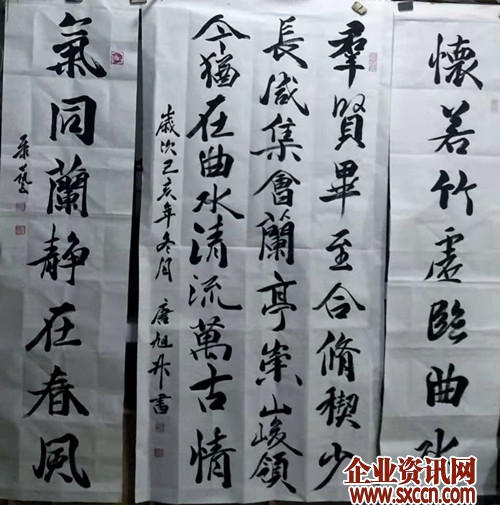 懷若竹虛臨曲水
羣賢畢至合脩禊少
長咸集會蘭亭崇山峻領
今猶在曲水清流萬古情
歲次己亥年冬月 唐旭升書
氣同蘭静在春風
企业资讯网
www.sxccn.com